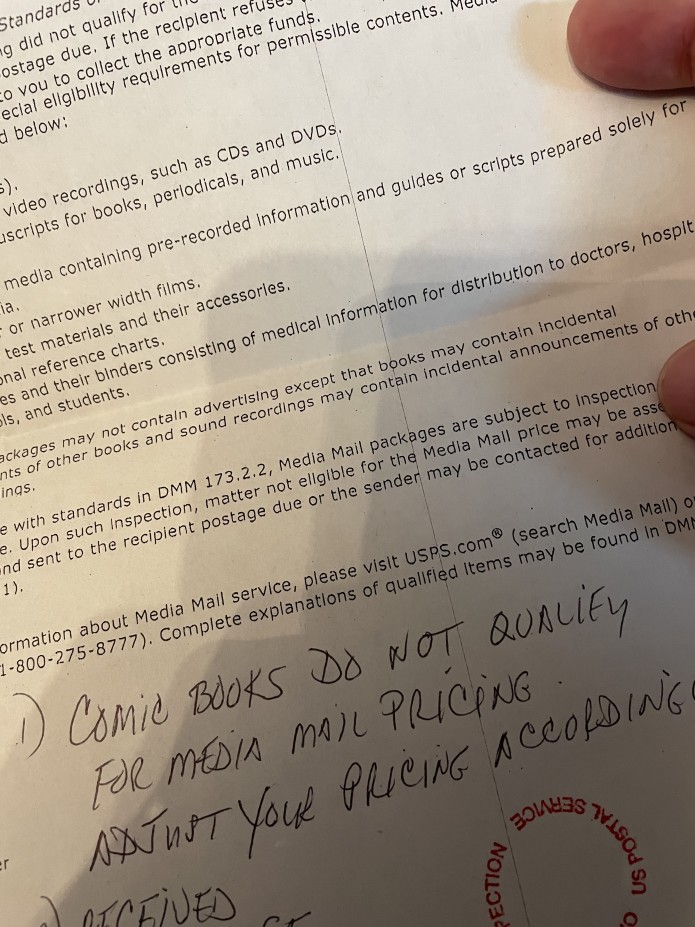 Standards
ng did not qualify for
ostage due. If the recipient refuses
to you to collect the appropriate funds.
ecial eligibility requirements for permissible contents.
d below:
s).
video recordings, such as CDs and DVDs.
uscripts for books, periodicals, and music.
media containing pre-recorded information and guides or scripts prepared solely for
ia.
or narrower width films.
test materials and their accessories.
onal reference charts.
es and their binders consisting of medical information for distribution to doctors, hospit
ols, and students.
ackages may not contain advertising except that books may contain incidental
nts of other books and sound recordings may contain incidental announcements of othe
ings.
e with standards in DMM 173.2.2, Media Mail packages are subject to inspection
e. Upon such inspection, matter not eligible for the Media Mail price may be asse
nd sent to the recipient postage due or the sender may be contacted for addition
1).
ormation about Media Mail service, please visit USPS.com® (search Media Mail) o
1-800-275-8777). Complete explanations of qualified items may be found in DMM
1) COMIC BOOKS DO NOT QUALIFY
FOR MEDIA MAIL PRICING.
ADJUST YOUR PRICING ACCORDING
er
RECEIVED
US POSTAL SERVICE
PECTION